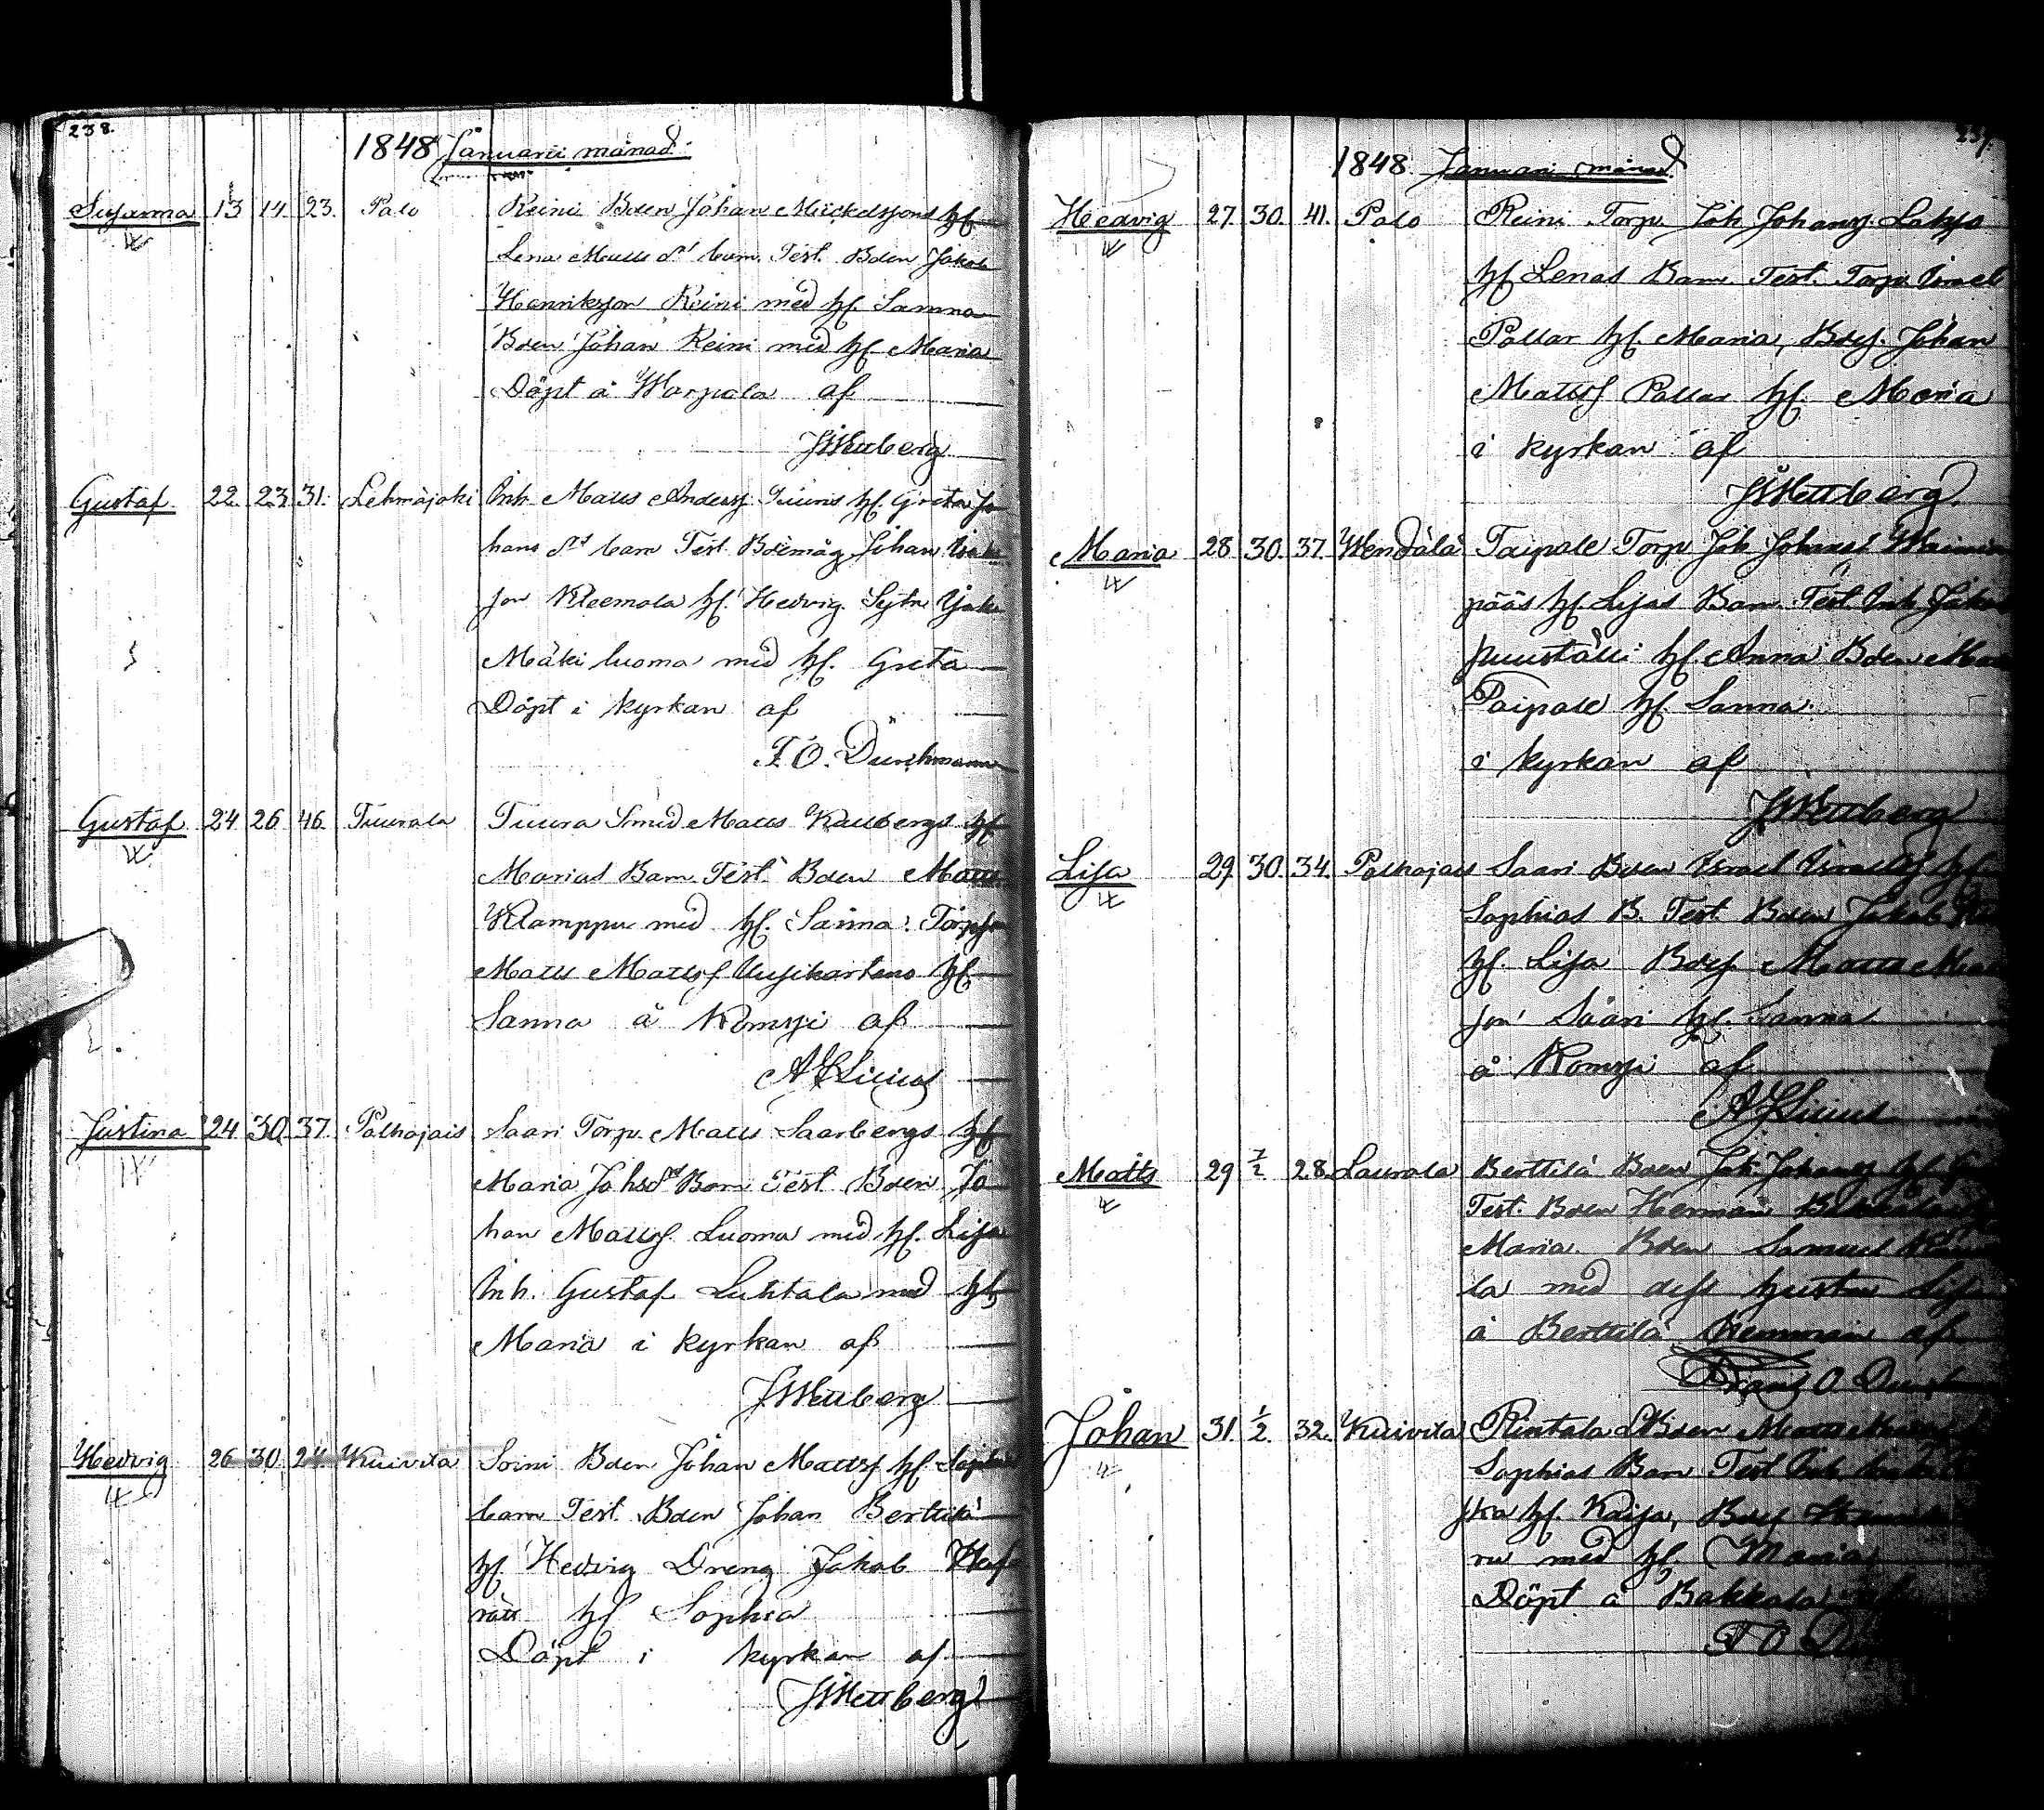 238.
1848 Januarii månad.
Susanna 13 14 23. Palo Reini Bden Johan Mickelssons hf
Lena Matts dr barn. Test. Bden Jakob
Henriksson Reini med hf. Sanna
Bden Johan Reini med hf. Maria
Döpt å Warpala af
JWettberg
Gustaf 22. 23 31. Lehmäjoki Inh. Matts Andersf Tuuris hf. Greta Jo
hans dr barn Test Bdemåg Johan
son Kleemola hf. Hedvig Sytn
Mäki luoma med hf. Greta
Döpt i kyrkan af
F.O. Durchmann
Gustaf 24 26 46. Tuurala Tuura Smed Matts Kallbergs hf
Marias Barn. Test. Bden Matts
Klamppu med hf. Sanna. Torp
Matts Mattsf Uusikartano hf.
Sanna å Komsi af
AFLicius
Justina 24 30. 37. Palhojais Saari Torp. Matts Saarbergs hf
Maria Johsdr Barn Test Bden Jo
han Mattsf. Luoma med hf. Lisa
Inh. Gustaf Luhtala med hf
Maria i kyrkan af
JWettberg
Hedvig 26 30. 24. Kuivila Soini Bden Johan Mattsf hf. Sophias
barn Test. Bden Johan Berttilä
hf Hedvig Dreng Jakob
hf Sophia
Döpt i kyrkan af
JWettberg
1848 Januari månad
Hedvig 27. 30. 41. Palo Reini Torp. Joh. Johansf.
hf Lenas Barn. Test. Torp. Israel
Pallar hf. Maria, Bdes. Johan
Mattsf Pallar hf. Maria
i kyrkan af
JWettberg
Maria 28. 30. 37. Wendälä Taipale Torp. Joh Johansf
pääs hf. Lisas Barn. Test. Inh. Jakob
hf. Anna Bden
Taipale hf. Sanna.
i kyrkan af
JWettberg
Lisa 29. 30. 34. Palhojais Saari Bden Israel Israelsf hf
Sophias B. Test Bden Jakob
hf. Lisa Bdes. Matts
son Saari hf. Sanna
å Komsi af
AFLicius
Matts 29 7/2 28. Laurola Berttilä Bden Joh. Johansf hf.
Test. Bden Herman
Maria. Bden Samuel
la med dess hustru Lisa
å Berttilä Hemman af
Franz O.
Johan 31. 1/2. 32. Kuivila Rintala Bden Matts
Sophias Barn Test Inh
hf. Kaisa, Bdes
ru med hf Maria
Döpt å Bakkala
F O